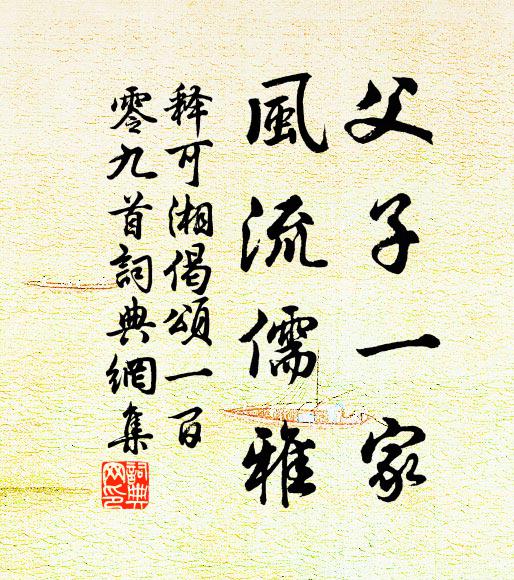 父子一家
風流儒雅
释可湘偈頌一百
零九首詞典網集
詞典
网印